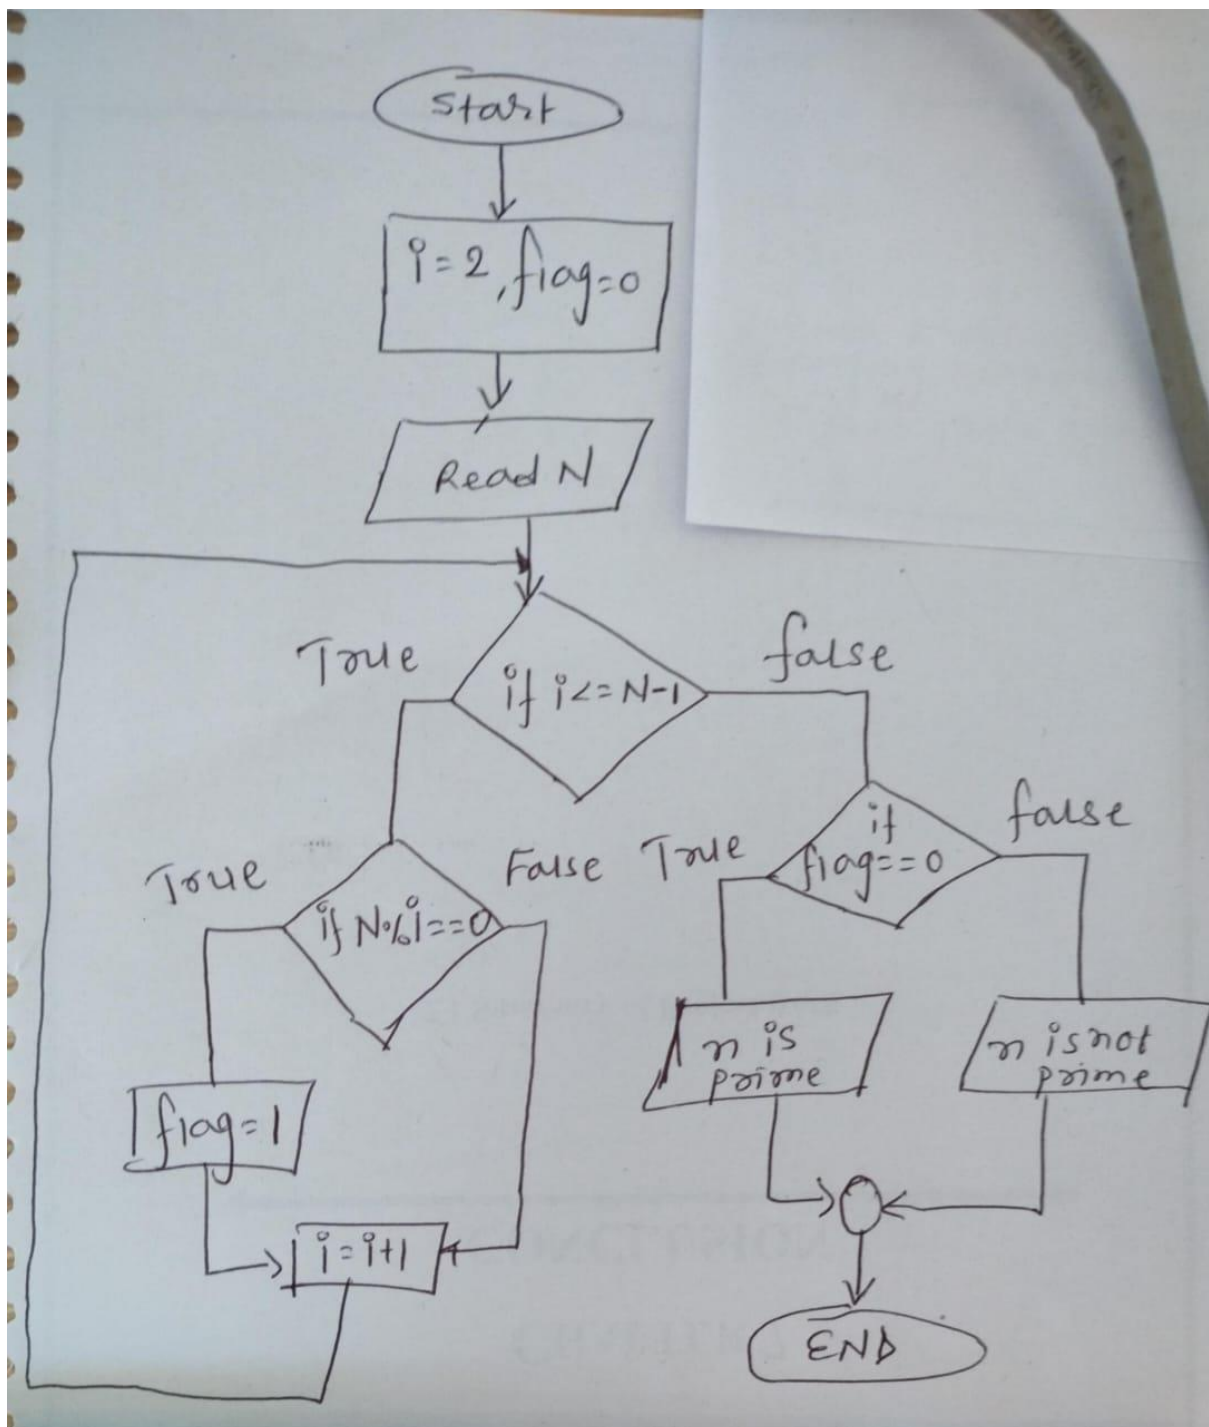 Start
i=2, flag=0
Read N
True
if i<=N-1
false
True
if N%i==0
False
True
if
flag==0
false
flag=1
i=i+1
n is
prime
n is not
prime
END